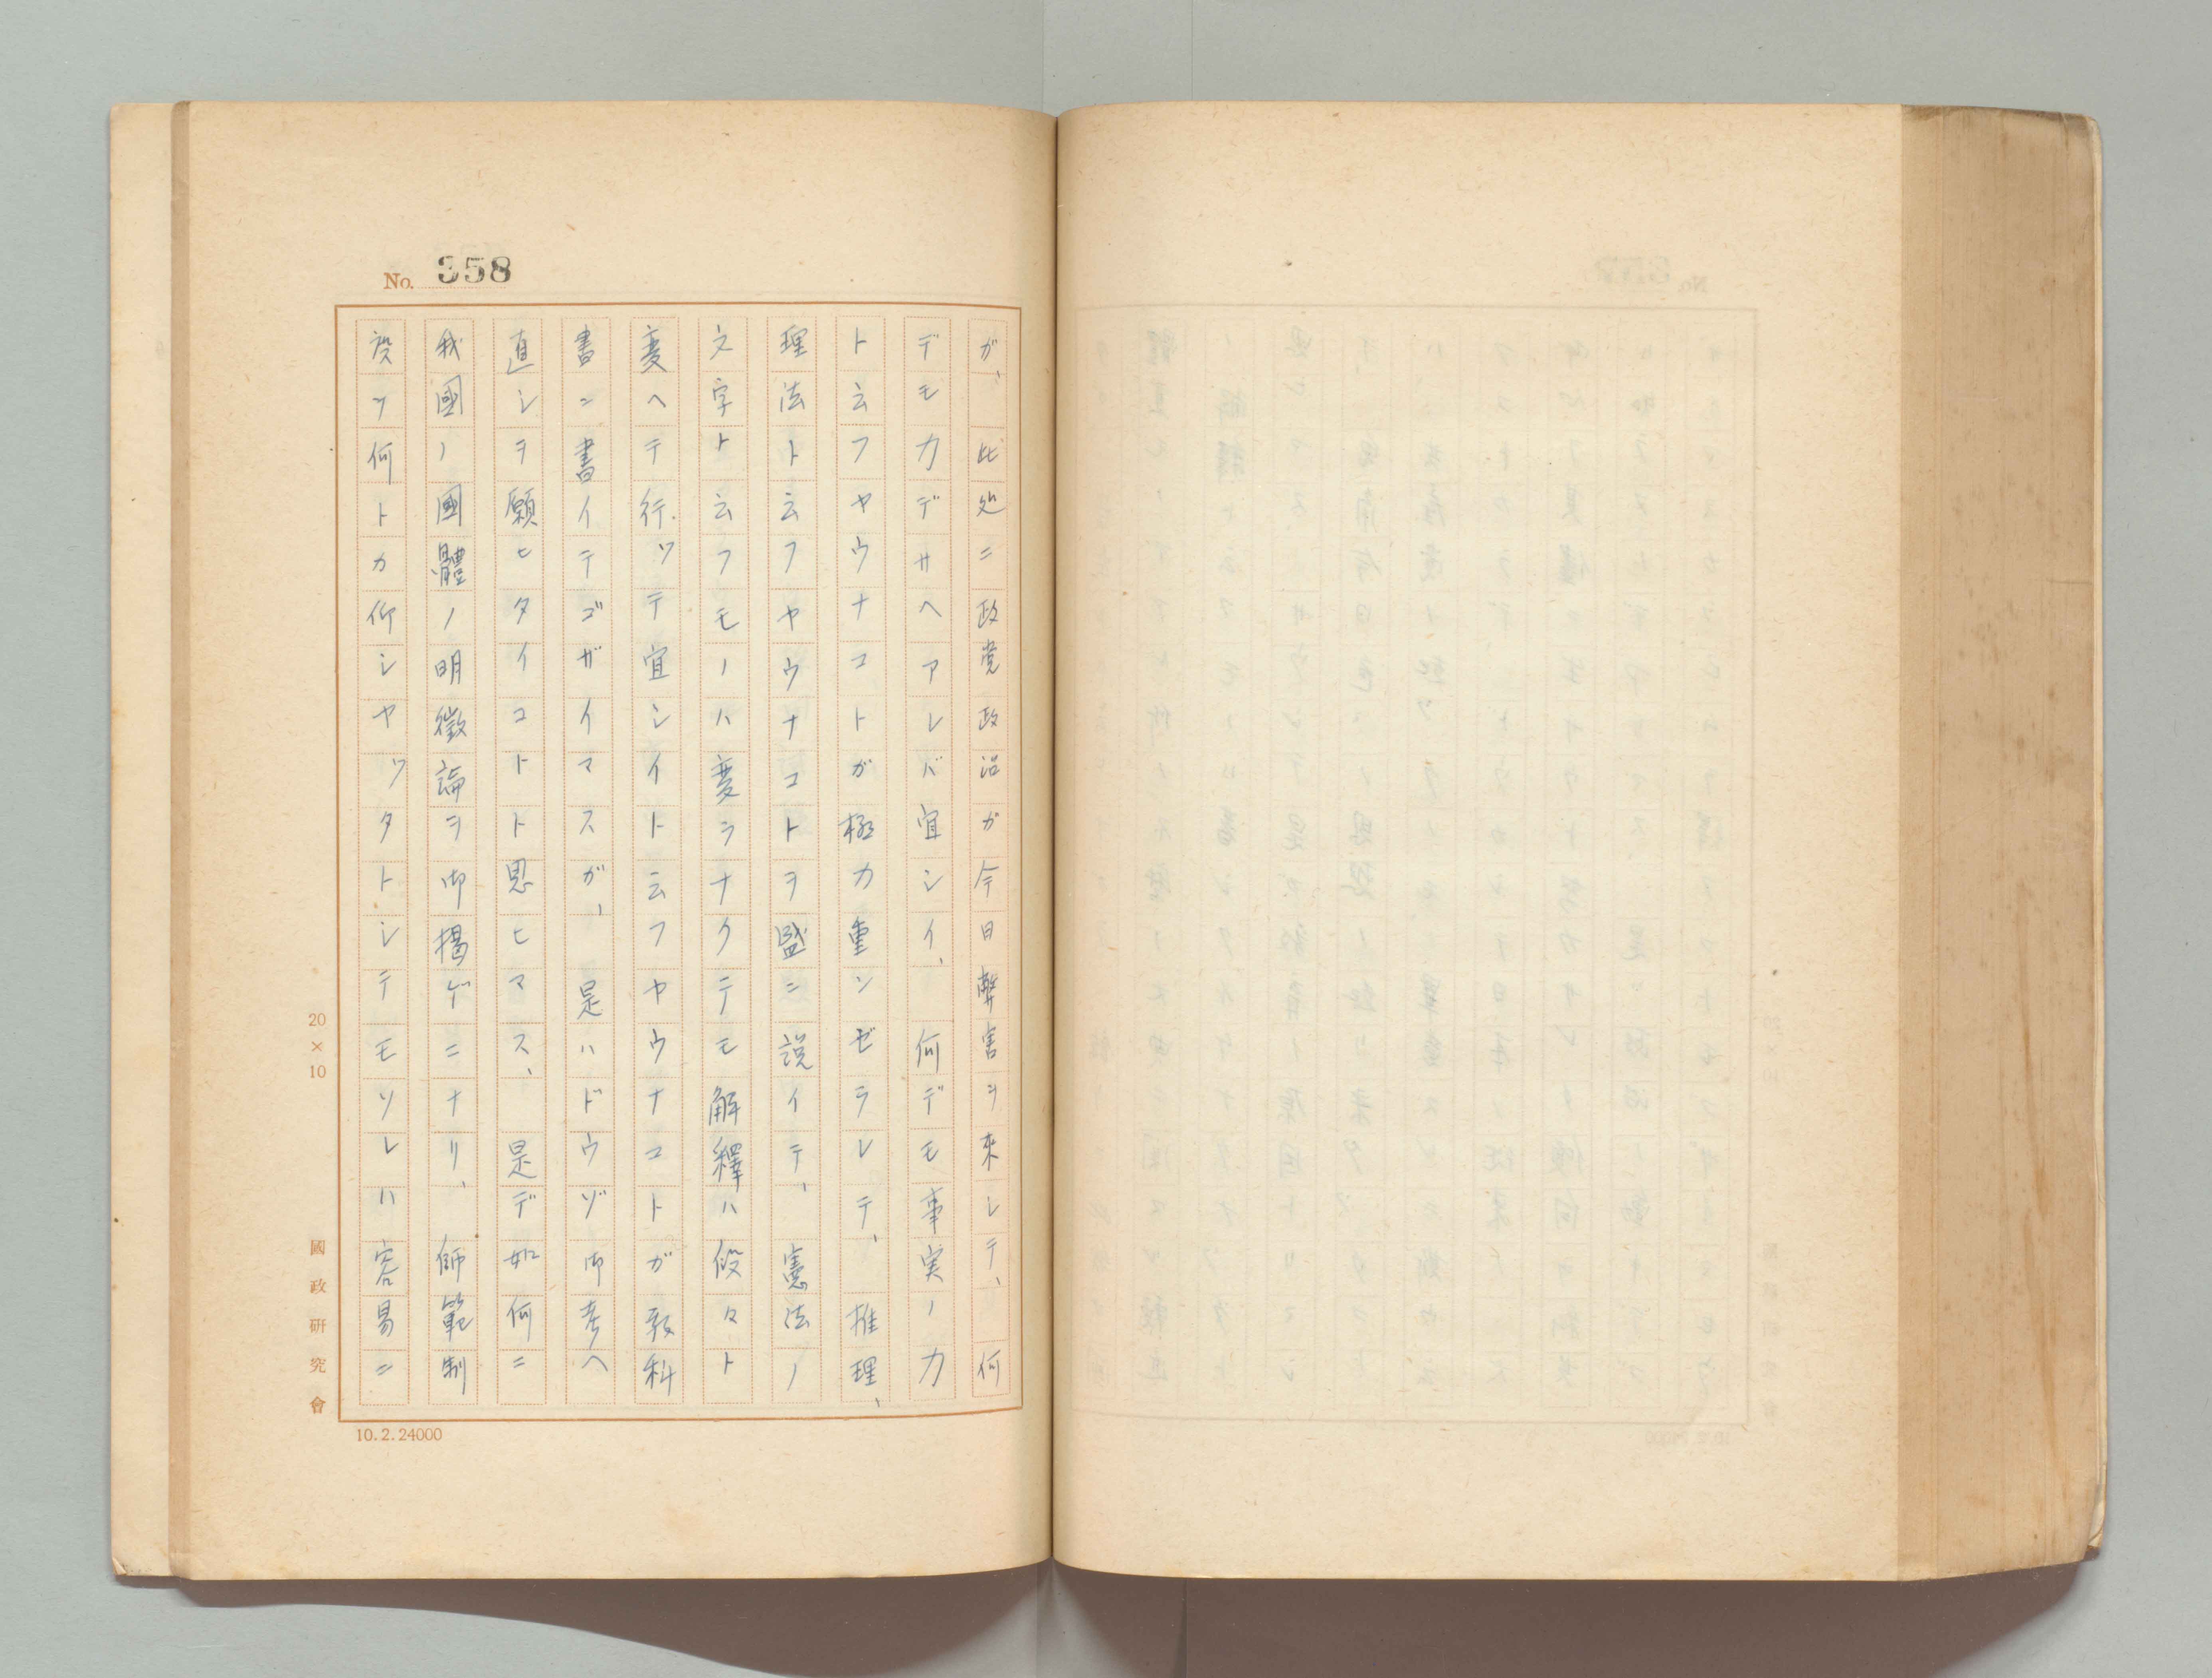 No. 358
ガ、此処ニ政党政治ガ今日弊害ヲ来シテ、何
デモカデサヘアレバ宜シイ、何デモ事実ノ力
ト云フヤウナコトガ極力重ンゼラレテ、推理、
理法ト云フヤウナコトヲ盛ニ説イテ、憲法ノ
文字ト云フモノハ変ラナクテモ解釋ハ段々ト
変ヘテ行ツテ宜シイト云フヤウナコトガ教科
書ニ書イテゴザイマスガ、是ハドウゾ御考ヘ
直シヲ願ヒタイコトト思ヒマス、是デ如何ニ
我國ノ國體ノ明徴論ヲ御掲ゲニナリ、師範制
度ヲ何トカ仰シヤツタトシテモソレハ容易ニ
20×10
國政研究會
10.2.24000